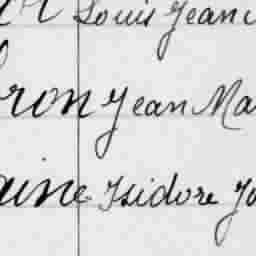 Louis Jean
ron Jean Ma
aine Isidore Jo